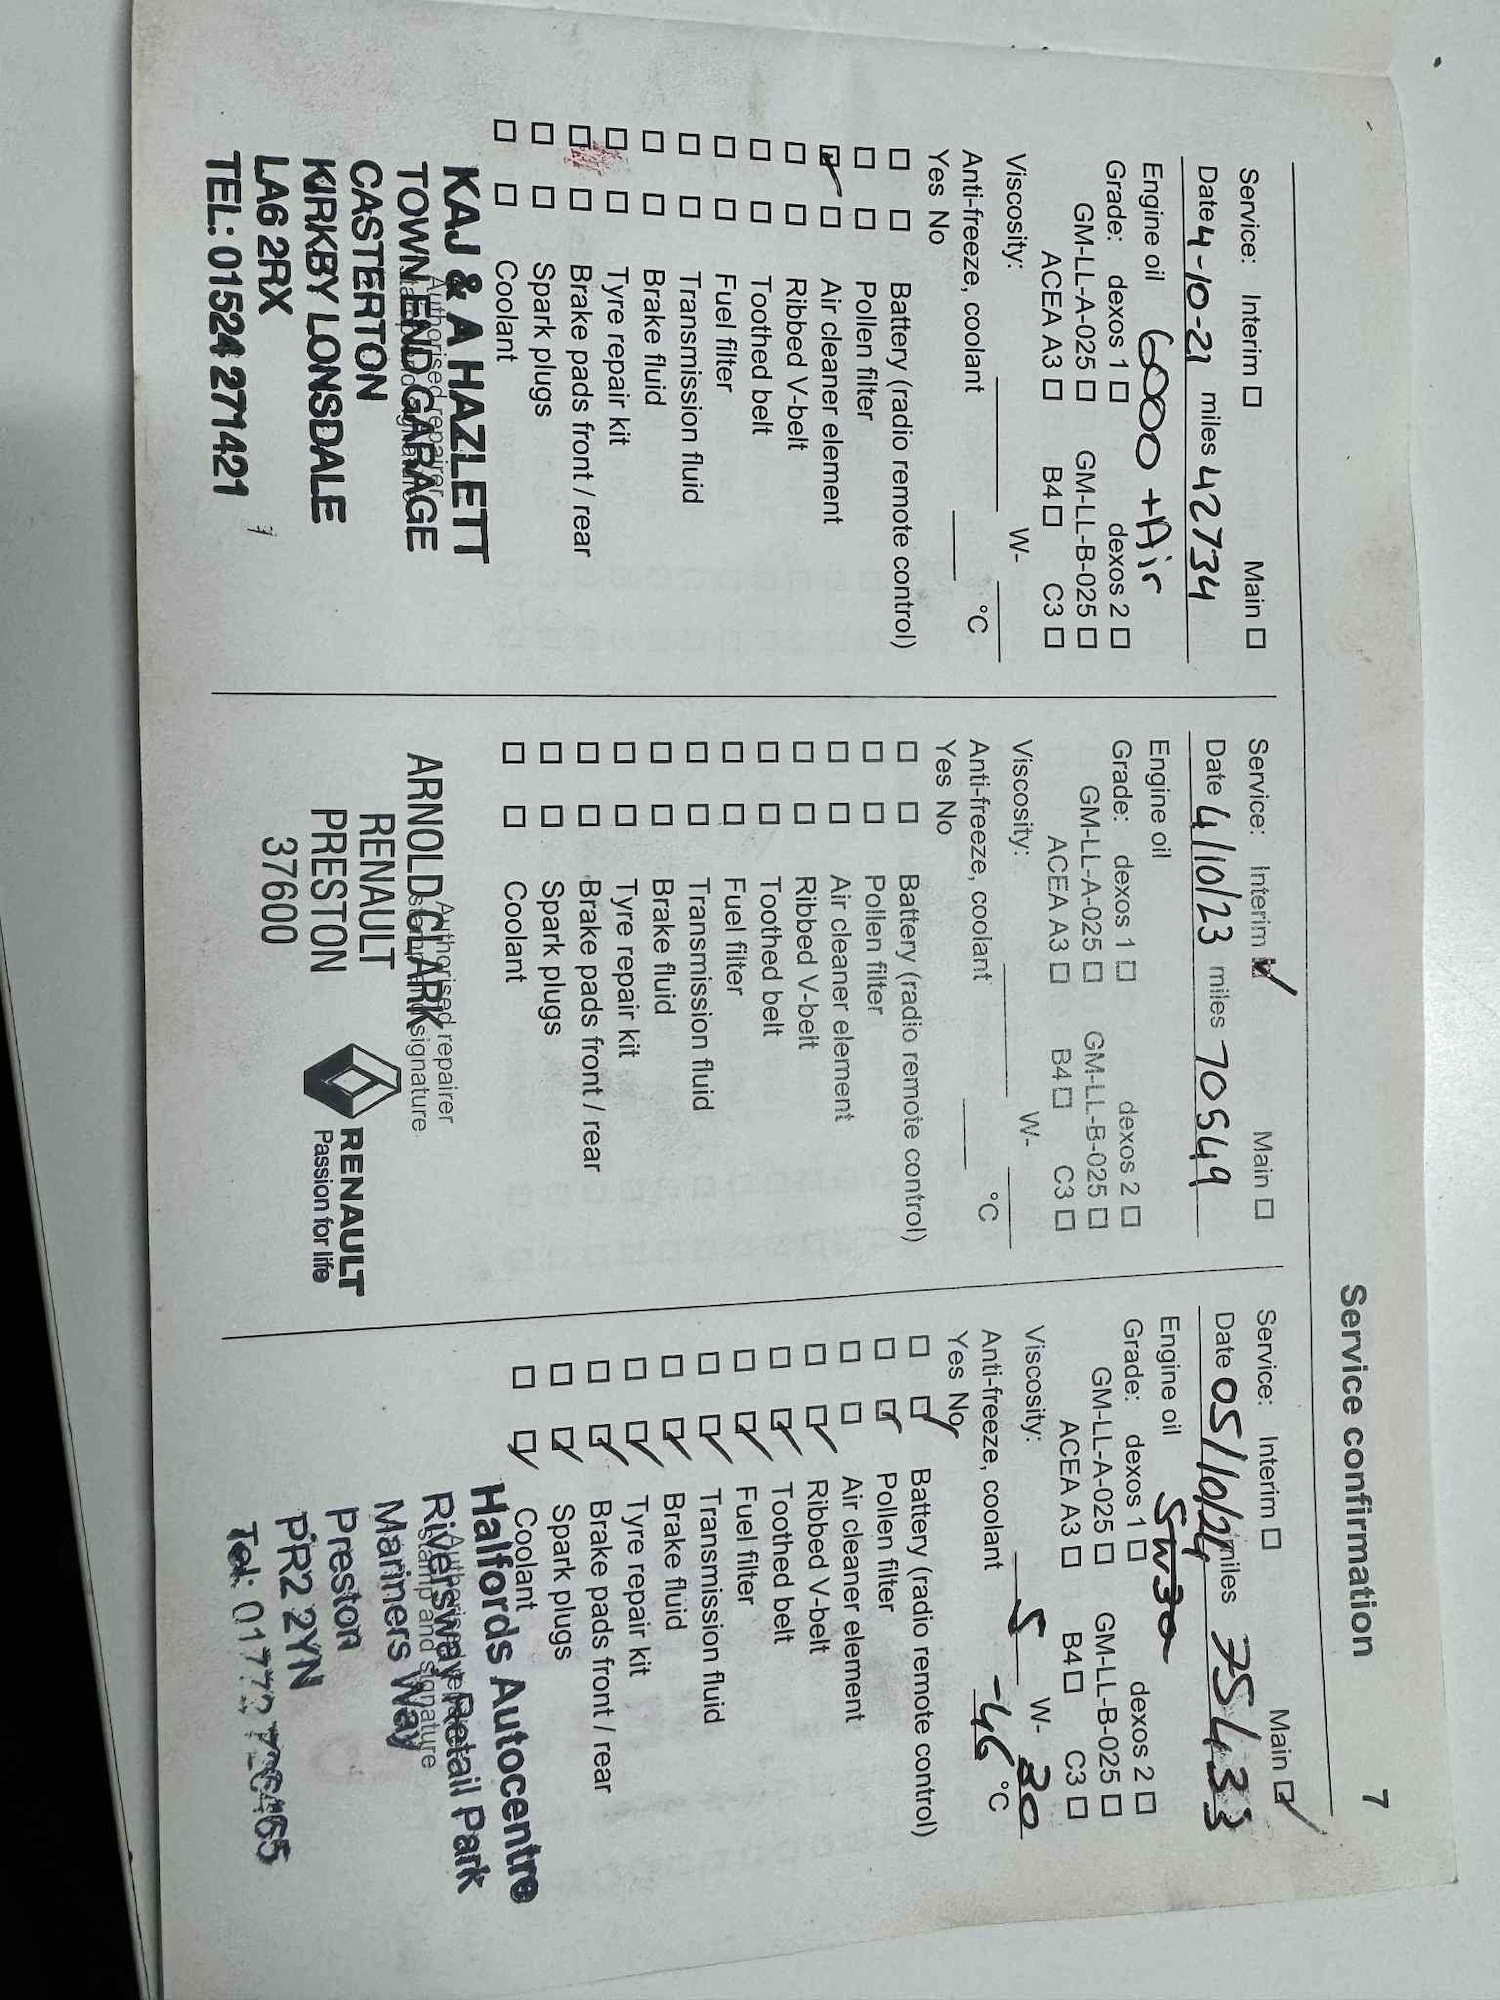 Service confirmation
7
Service: Interim ☐ Main ☐
Date 4-10-21 miles 42734
Engine oil 6000 + Air
Grade: dexos 1 ☐ dexos 2 ☐
GM-LL-A-025 ☐ GM-LL-B-025 ☐
ACEA A3 ☐ B4 ☐ C3 ☐
Viscosity: W-
Anti-freeze, coolant °C
Yes No
☐ ☐ Battery (radio remote control)
☐ ☐ Pollen filter
☑ ☐ Air cleaner element
☐ ☐ Ribbed V-belt
☐ ☐ Toothed belt
☐ ☐ Fuel filter
☐ ☐ Transmission fluid
☐ ☐ Brake fluid
☐ ☐ Tyre repair kit
☐ ☐ Brake pads front / rear
☐ ☐ Spark plugs
☐ ☐ Coolant
KAJ & A HAZLETT
Authorised repairer
TOWN END GARAGE
CASTERTON
KIRKBY LONSDALE
LA6 2RX
TEL: 01524 271421
Service: Interim ☑ Main ☐
Date 4/10/23 miles 70549
Engine oil
Grade: dexos 1 ☐ dexos 2 ☐
GM-LL-A-025 ☐ GM-LL-B-025 ☐
ACEA A3 ☐ B4 ☐ C3 ☐
Viscosity: W-
Anti-freeze, coolant °C
Yes No
☐ ☐ Battery (radio remote control)
☐ ☐ Pollen filter
☐ ☐ Air cleaner element
☐ ☐ Ribbed V-belt
☐ ☐ Toothed belt
☐ ☐ Fuel filter
☐ ☐ Transmission fluid
☐ ☐ Brake fluid
☐ ☐ Tyre repair kit
☐ ☐ Brake pads front / rear
☐ ☐ Spark plugs
☐ ☐ Coolant
Authorised repairer
signature
ARNOLD CLARK
RENAULT
PRESTON
37600
RENAULT
Passion for life
Service: Interim ☐ Main ☑
Date 05/10/24 miles 75433
Engine oil 5w30
Grade: dexos 1 ☐ dexos 2 ☐
GM-LL-A-025 ☐ GM-LL-B-025 ☐
ACEA A3 ☐ B4 ☐ C3 ☐
Viscosity: 5 W- 30
Anti-freeze, coolant -46 °C
Yes No
☐ ☑ Battery (radio remote control)
☐ ☑ Pollen filter
☐ ☐ Air cleaner element
☐ ☑ Ribbed V-belt
☐ ☑ Toothed belt
☐ ☑ Fuel filter
☐ ☑ Transmission fluid
☐ ☑ Brake fluid
☐ ☑ Tyre repair kit
☐ ☑ Brake pads front / rear
☐ ☑ Spark plugs
☐ ☑ Coolant
Halfords Autocentre
Authorised
Riversway Retail Park
stamp and signature
Mariners Way
Preston
PR2 2YN
Tel: 01772